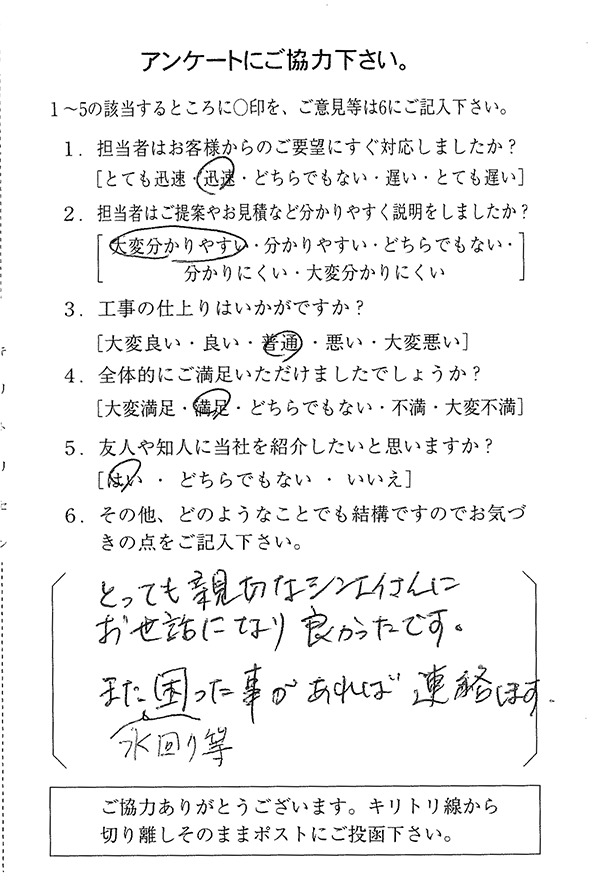 アンケートにご協力下さい。
1～5の該当するところに〇印を、ご意見等は6にご記入下さい。
1．担当者はお客様からのご要望にすぐ対応しましたか？
[とても迅速・迅速・どちらでもない・遅い・とても遅い]
2．担当者はご提案やお見積など分かりやすく説明をしましたか？
[大変分かりやすい・分かりやすい・どちらでもない・
分かりにくい・大変分かりにくい]
3．工事の仕上りはいかがですか？
[大変良い・良い・普通・悪い・大変悪い]
4．全体的にご満足いただけましたでしょうか？
[大変満足・満足・どちらでもない・不満・大変不満]
5．友人や知人に当社を紹介したいと思いますか？
[はい・どちらでもない・いいえ]
6．その他、どのようなことでも結構ですのでお気づ
きの点をご記入下さい。
とっても親切なシンエイさんに
お世話になり良かったです。
また困った事があれば連絡します。
水回り等
ご協力ありがとうございます。キリトリ線から
切り離しそのままポストにご投函下さい。